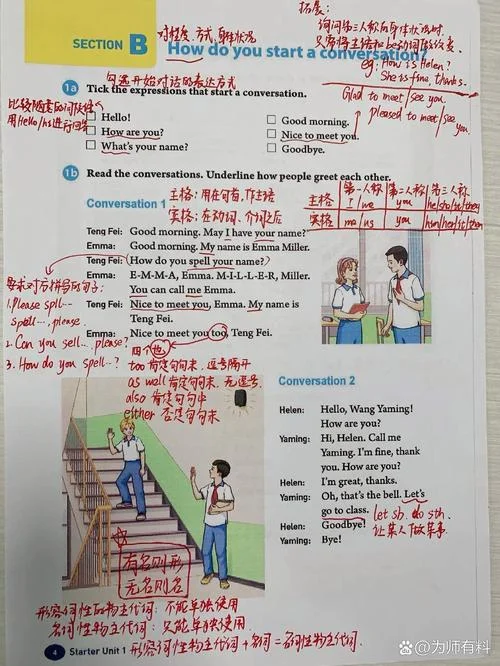 拓展：
对程度、方式、身体状况
询问第三人称的身体状况时
只需将主语和be动词做改变
SECTION B How do you start a conversation?
eg: How is Helen?
She is fine, thanks.
勾选开始对话的表达方式
1a Tick the expressions that start a conversation.
Glad to meet/see you.
pleased to meet/see you
比较随意的问候语
用Hello/Hi进行回答
Hello!
Good morning.
How are you?
Nice to meet you.
What's your name?
Goodbye.
1b Read the conversations. Underline how people greet each other.
Conversation 1
主格：用在句首，作主语
宾格：在动词、介词之后
第一人称 第二人称 第三人称
主格 I/we you he/she/it/they
宾格 me/us you him/her/it/them
Teng Fei: Good morning. May I have your name?
Emma: Good morning. My name is Emma Miller.
Teng Fei: How do you spell your name?
Emma: E-M-M-A, Emma. M-I-L-L-E-R, Miller.
You can call me Emma.
Teng Fei: Nice to meet you, Emma. My name is
Teng Fei.
Emma: Nice to meet you too, Teng Fei.
要求对方拼写的句子：
1. Please spell...
spell..., please.
2. Can you sell..., please?
3. How do you spell...?
四个也
too 肯定句句末，逗号隔开
as well 肯定句句末，无逗号
also 肯定句句中
either 否定句句末
Conversation 2
Helen: Hello, Wang Yaming!
How are you?
Yaming: Hi, Helen. Call me
Yaming. I'm fine, thank
you. How are you?
Helen: I'm great, thanks.
Yaming: Oh, that's the bell. Let's
go to class.
let sb. do sth.
让某人做某事
Helen: Goodbye!
Yaming: Bye!
有名则形
无名则名
形容词性物主代词：不能单独使用
名词性物主代词：只能单独使用
形容词性物主代词 + 名词 = 名词性物主代词.
4 Starter Unit 1
@为师有料